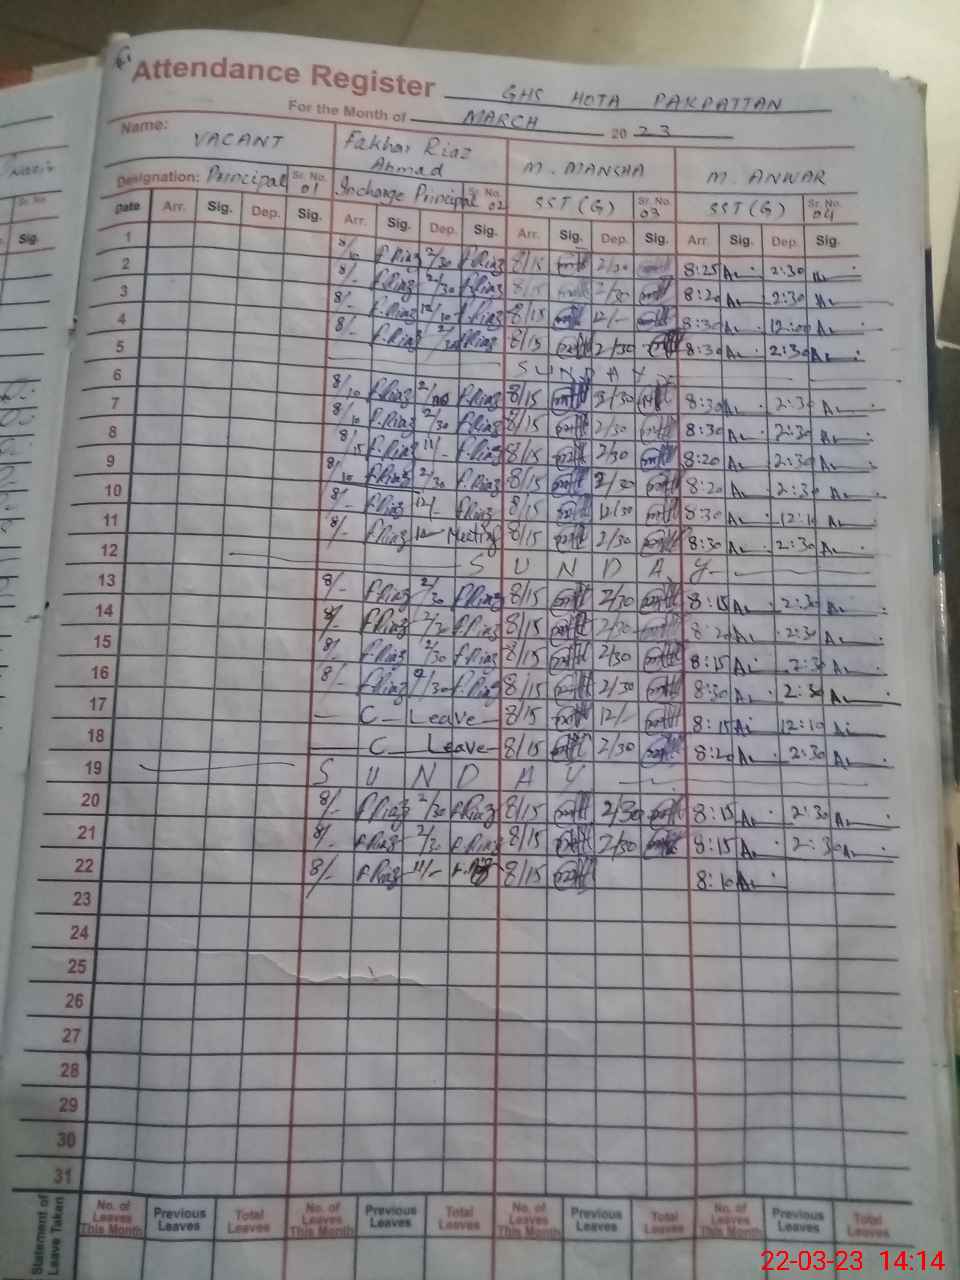 Attendance Register GHS HOTA PAKPATTAN
For the Month of MARCH 2023
Name: VACANT Fakhar Riaz Ahmad M. MANSHA M. ANWAR
Designation: Principal Sr. No. 01 Incharge Principal Sr. No. 02 SST (G) Sr. No. 03 SST (G) Sr. No. 04
Date Arr. Sig. Dep. Sig. Arr. Sig. Dep. Sig. Arr. Sig. Dep. Sig. Arr. Sig. Dep. Sig.
1 8/10 f.Riaz 2/30 f.Riaz 8/15 2/30 8:25 2:30
2 8/- f.Riaz 2/30 f.Riaz 8/15 2/30 8:20 2:30
3 8/- f.Riaz 12/10 f.Riaz 8/15 12/- 8:30 12:00
4 8/- f.Riaz 2/30 f.Riaz 8/15 2/30 8:30 2:30
5 SUNDAY
6 8/10 f.Riaz f.Riaz 8/15 2/30 8:30 2:30
7 8/10 f.Riaz 2/30 f.Riaz 8/15 2/30 8:30 2:30
8 8/15 f.Riaz f.Riaz 8/15 2/30 8:20 2:30
9 8/10 f.Riaz 2/30 f.Riaz 8/15 2/30 8:20 2:30
10 8/- f.Riaz 12/- f.Riaz 8/15 12/30 8:30 12:10
11 8/- f.Riaz Meeting 8/15 2/30 8:30 2:30
12 SUNDAY
13 8/- f.Riaz 2/30 f.Riaz 8/15 2/30 8:15 2:30
14 8/- f.Riaz 2/30 f.Riaz 8/15 2/30 8:20 2:30
15 8/- f.Riaz 2/30 f.Riaz 8/15 2/30 8:15 2:30
16 8/- f.Riaz 2/30 f.Riaz 8/15 2/30 8:30 2:30
17 C - Leave 8/15 12/- 8:15 12:10
18 C Leave 8/15 2/30 8:20 2:30
19 SUNDAY
20 8/- f.Riaz 2/30 f.Riaz 8/15 2/30 8:15 2:30
21 8/- f.Riaz 2/30 f.Riaz 8/15 2/30 8:15 2:30
22 8/- f.Riaz 11/- 8/15 8:10
23
24
25
26
27
28
29
30
31
Statement of Leave Taken No. of Leaves This Month Previous Leaves Total Leaves No. of Leaves This Month Previous Leaves Total Leaves No. of Leaves This Month Previous Leaves Total Leaves No. of Leaves This Month Previous Leaves Total Leaves
22-03-23 14:14